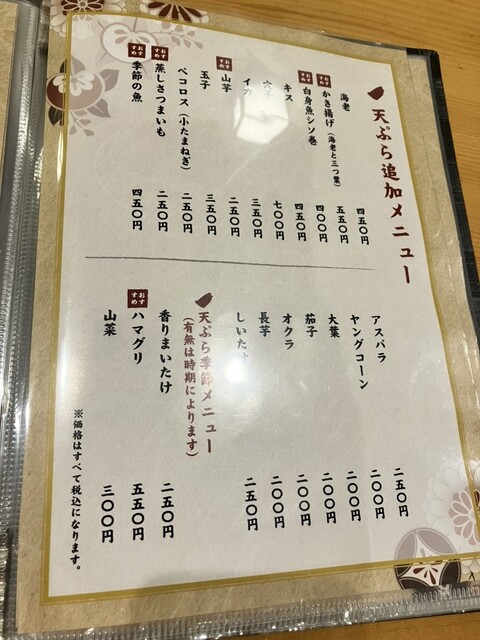 天ぷら追加メニュー
海老 四五〇円
おすすめ かき揚げ(海老と三つ葉) 五五〇円
おすすめ 白身魚シソ巻 四〇〇円
キス 四五〇円
穴子 七〇〇円
イカ 三五〇円
おすすめ 山芋 二五〇円
玉子 三五〇円
ペコロス(小たまねぎ) 二五〇円
おすすめ 蒸しさつまいも 二五〇円
おすすめ 季節の魚 四五〇円
アスパラ 二五〇円
ヤングコーン 二〇〇円
大葉 二〇〇円
茄子 二〇〇円
オクラ 二〇〇円
長芋 二〇〇円
しいたけ 二五〇円
天ぷら季節メニュー
(有無は時期によります)
香りまいたけ 二五〇円
おすすめ ハマグリ 五五〇円
山菜 三〇〇円
※価格はすべて税込になります。